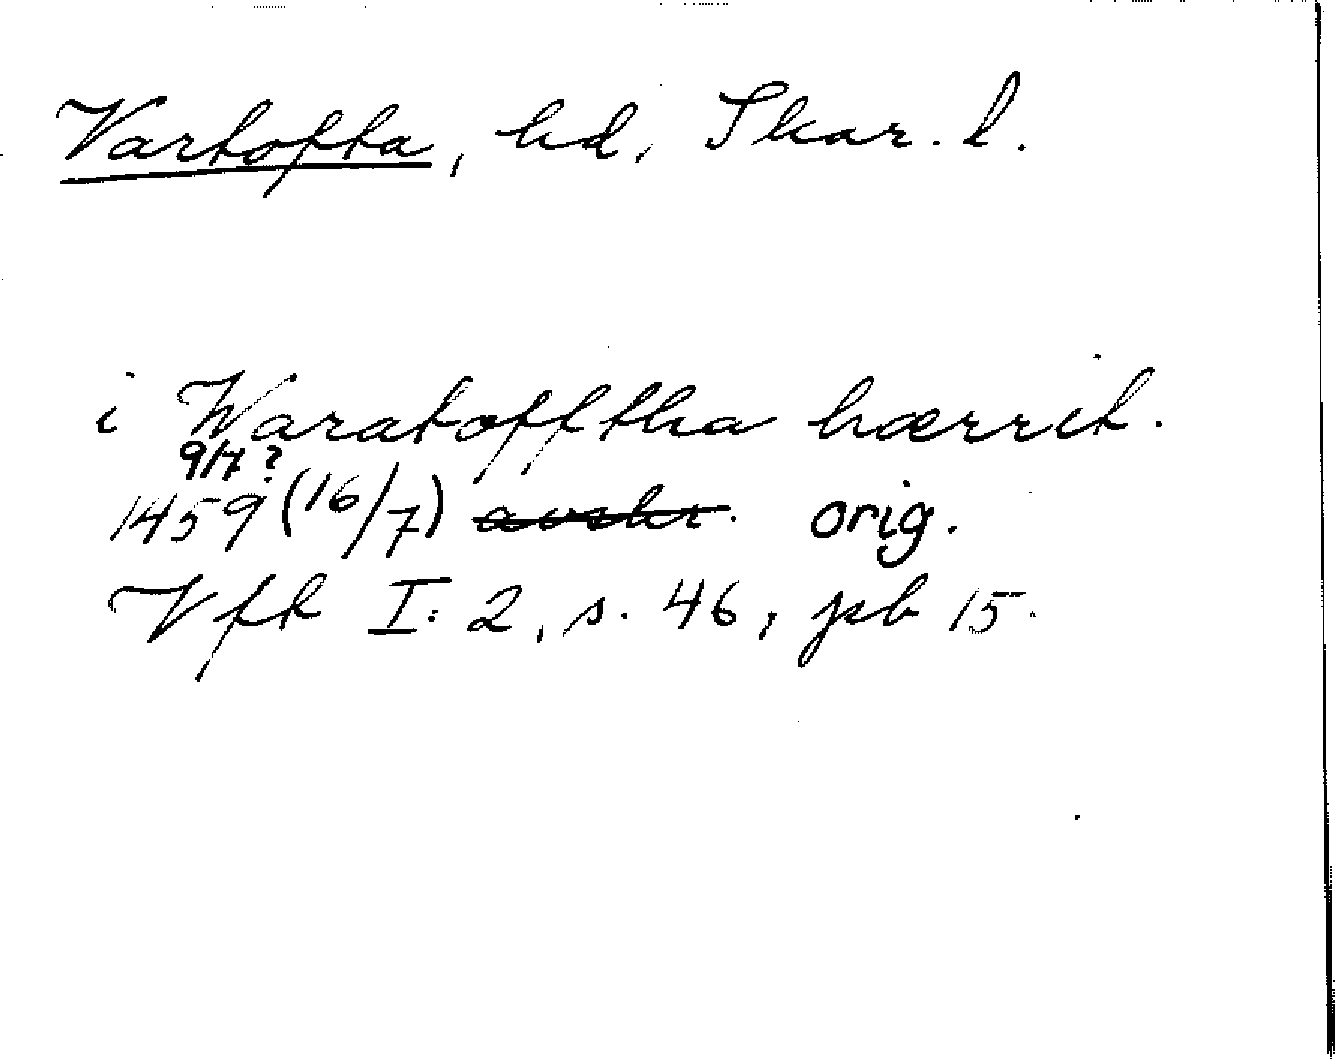 Vartofta, hd, Skar. l.
i Waratofftha hærrit.
9/7?
1459 (16/7) avskr. orig.
Vft I:2, s. 46, psb 15.